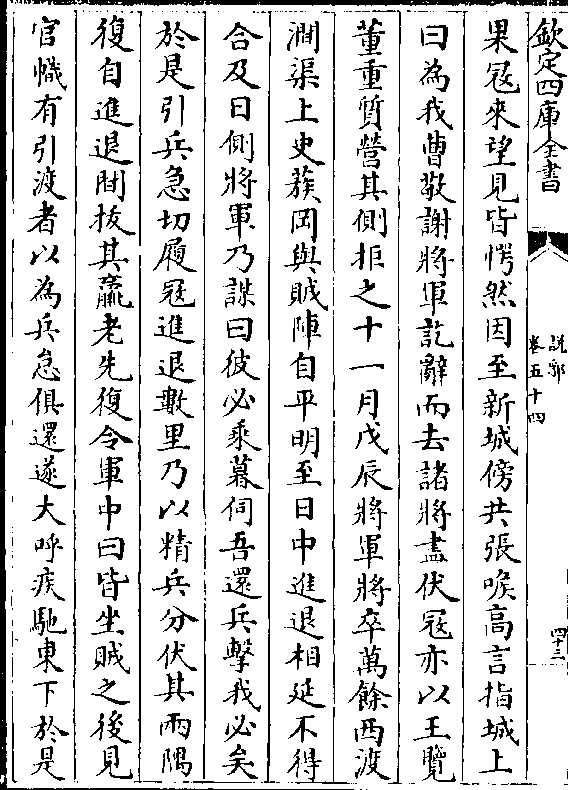 欽定四庫全書
說郛
卷五十四
四十三
果冦來望見皆愕然因至新城傍共張喉高言指城上
曰為我曹敬謝將軍訖辭而去諸將盡伏冦亦以王覽
董重質營其側拒之十一月戊辰將軍將卒萬餘西渡
澗渠上史蔟岡與賊陣自平明至日中進退相延不得
合及日側將軍乃謀曰彼必乘暮伺吾還兵擊我必矣
於是引兵急切履冦進退數里乃以精兵分伏其兩隅
復自進退間拔其羸老先復令軍中曰皆坐賊之後見
官幟有引渡者以為兵怠俱還遂大呼疾馳東下於是